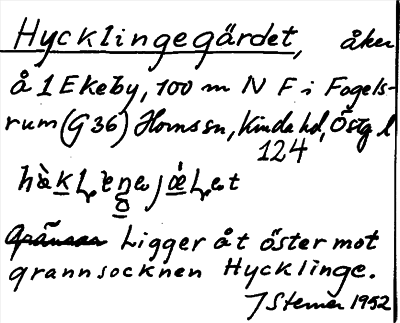 Hycklingegärdet, åker
å 1 Ekeby, 100 m N F i Fogels-
rum (G 36) Hornssn, Kinda hd, Östg l
124
Ligger åt öster mot
grannsocknen Hycklinge.
J Stemer 1952